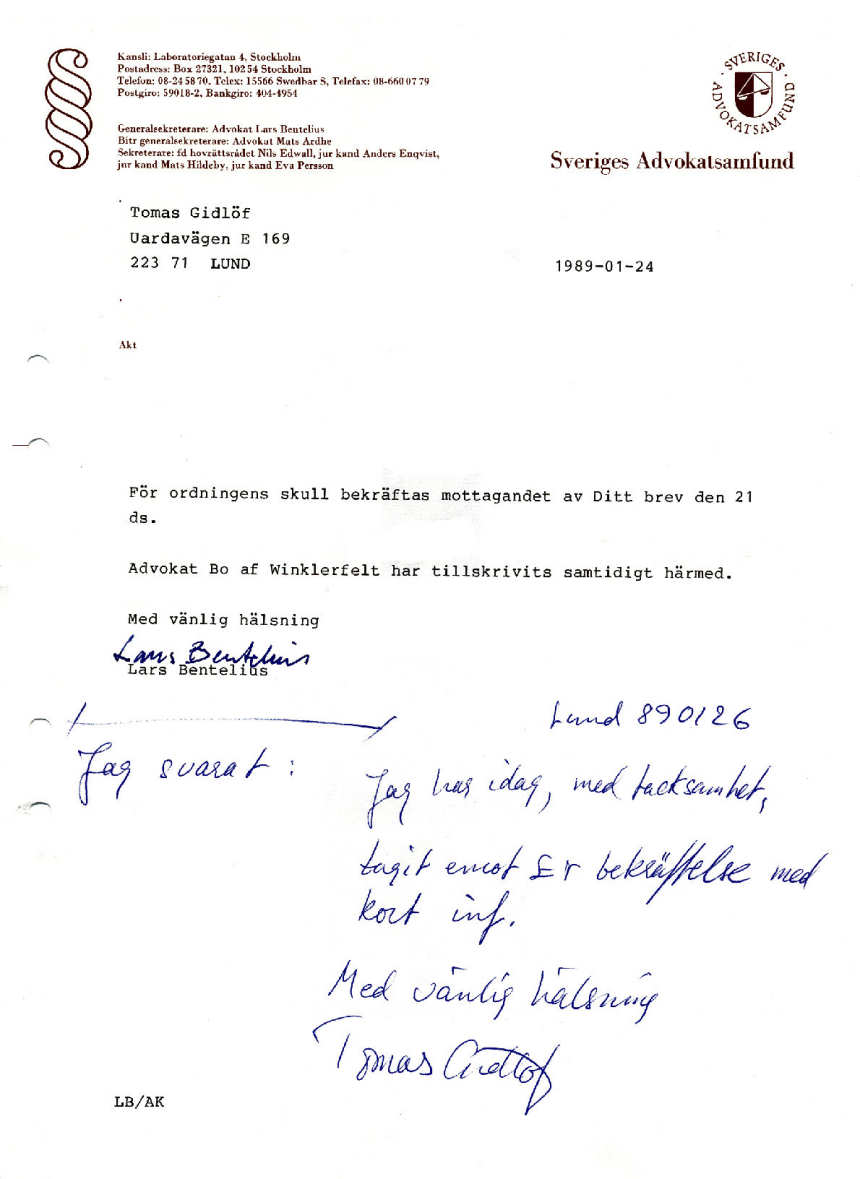 Kansli: Laboratoriegatan 4, Stockholm
Postadress: Box 27321, 102 54 Stockholm
Telefon: 08-24 58 70, Telex: 15566 Swedbar S, Telefax: 08-660 07 79
Postgiro: 59018-2, Bankgiro: 404-4954
Generalsekreterare: Advokat Lars Bentelius
Bitr generalsekreterare: Advokat Mats Ardhe
Sekreterare: fd hovrättsrådet Nils Edwall, jur kand Anders Enqvist,
jur kand Mats Hildeby, jur kand Eva Persson
SVERIGES ADVOKATSAMFUND
Sveriges Advokatsamfund
Tomas Gidlöf
Uardavägen E 169
223 71 LUND
1989-01-24
Akt
För ordningens skull bekräftas mottagandet av Ditt brev den 21
ds.
Advokat Bo af Winklerfelt har tillskrivits samtidigt härmed.
Med vänlig hälsning
Lars Bentelius
Lars Bentelius
Lund 890126
Jag svarat:
Jag har idag, med tacksamhet,
tagit emot Er bekräftelse med
kort inf.
Med vänlig hälsning
Tomas Gidlöf
LB/AK